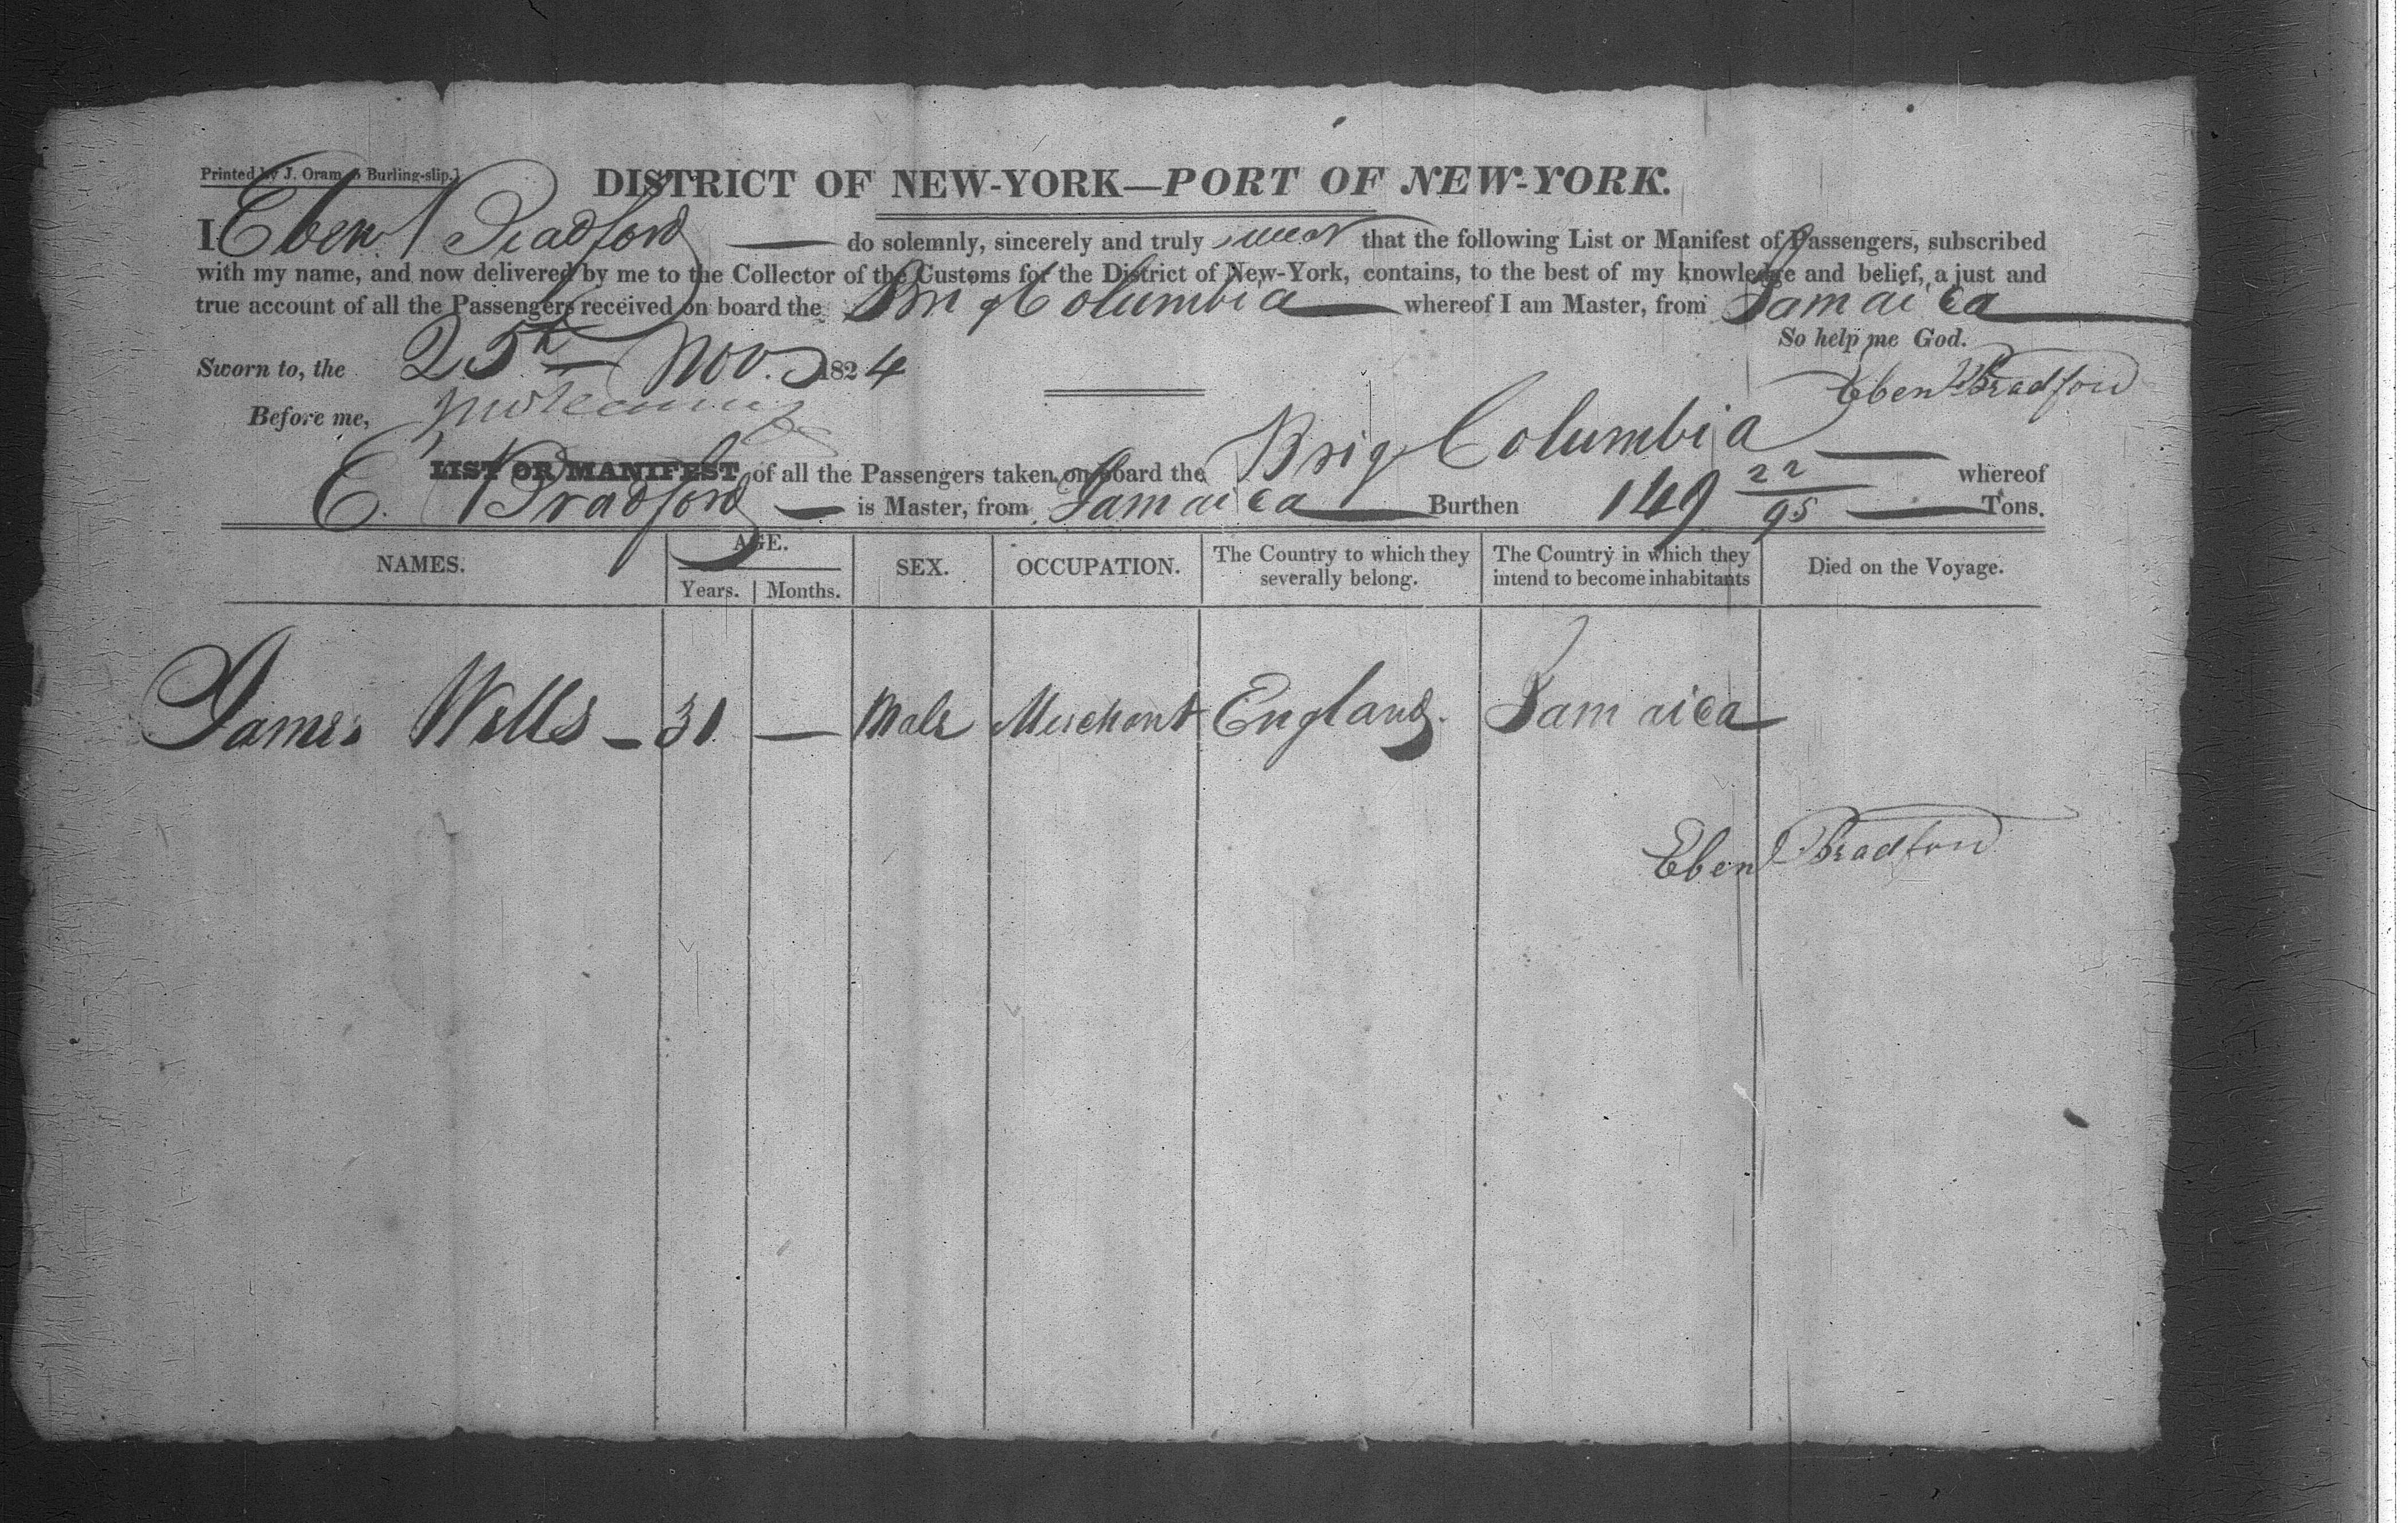 Printed by J. Oram, Burling-slip.]
DISTRICT OF NEW-YORK—PORT OF NEW-YORK.
I Eben Bradford — do solemnly, sincerely and truly swear that the following List or Manifest of Passengers, subscribed
with my name, and now delivered by me to the Collector of the Customs for the District of New-York, contains, to the best of my knowledge and belief, a just and
true account of all the Passengers received on board the Brig Columbia — whereof I am Master, from Jamaica —
So help me God.
Sworn to, the 25th Nov. 1824
Eben Bradford
Before me,
LIST OR MANIFEST of all the Passengers taken on board the Brig Columbia — whereof
E. Bradford — is Master, from Jamaica — Burthen 149 22/95 — Tons.
NAMES. AGE. SEX. OCCUPATION. The Country to which they severally belong. The Country in which they intend to become inhabitants Died on the Voyage.
Years. Months.
James Wells — 31 — Male Merchant England. Jamaica
Eben Bradford